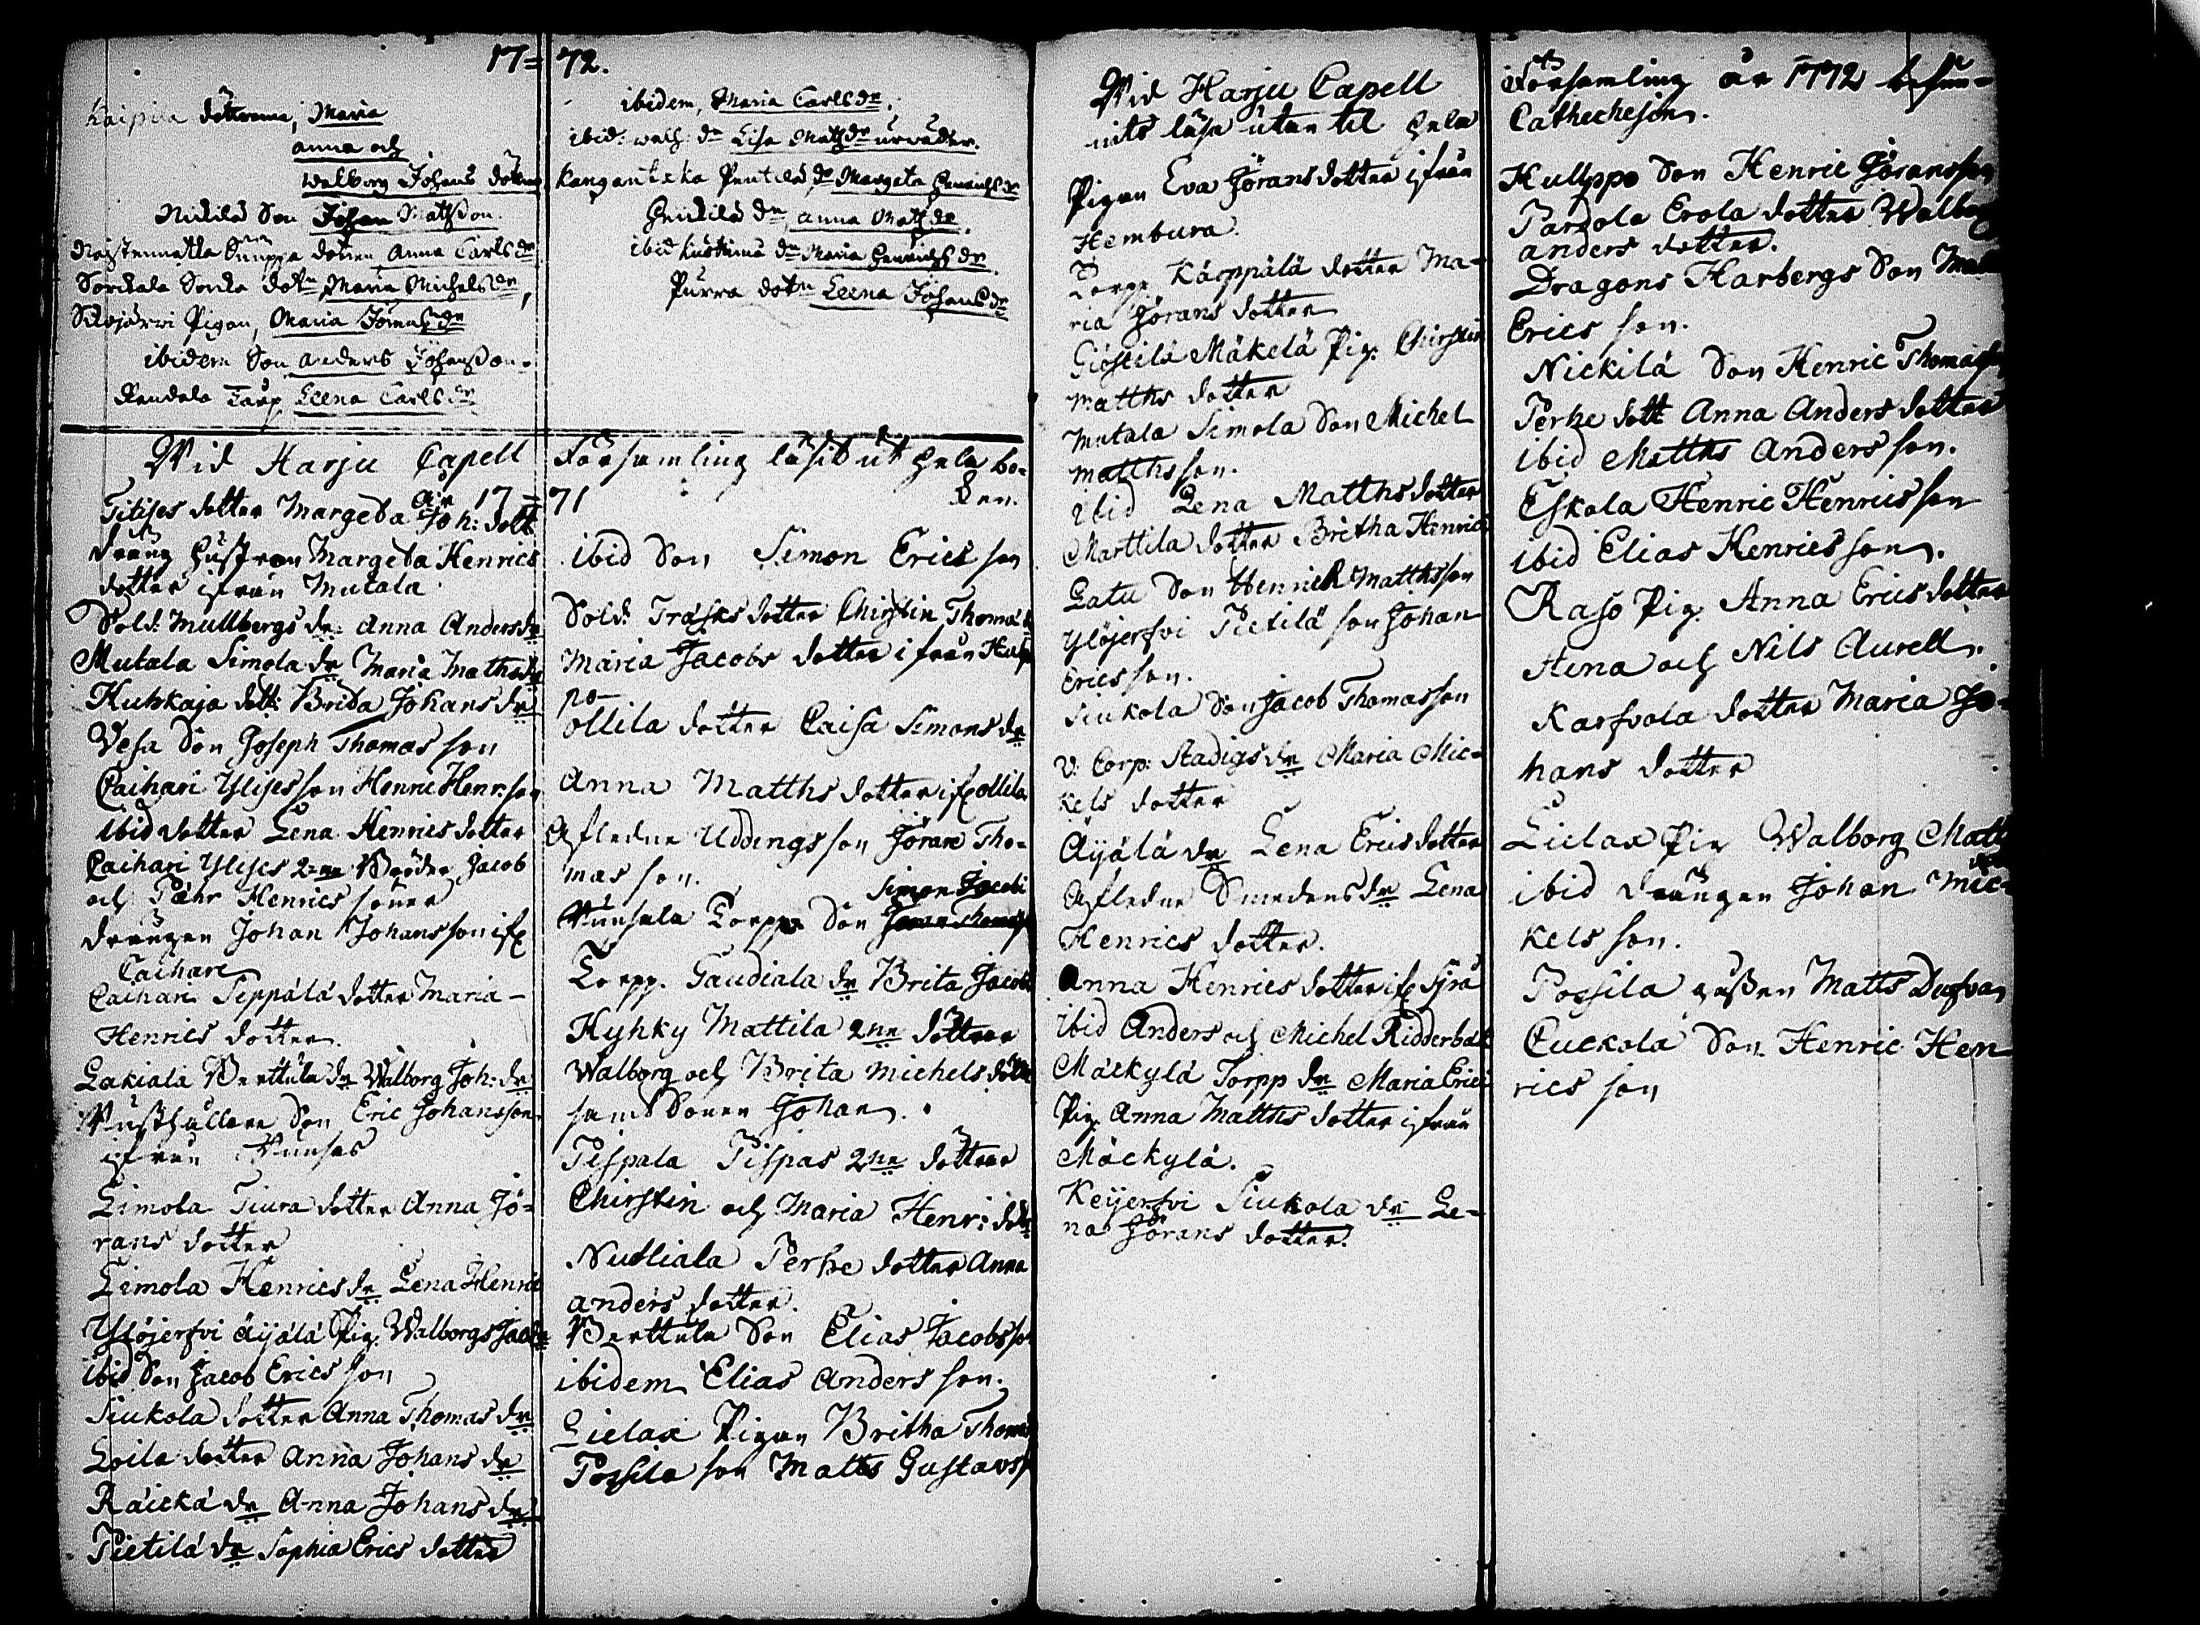 17=72.
Kaipila döttrarna, Maria
anna och
Walborg Johans döttrar
Nickilä Son Johan Mathsson
dottren Anna Carls dr
Sorckala dotn Maria Michels dr,
Pigan, Maria
ibidem Son anders Johansson.
Leena Carls dr
ibidem, Maria Carls dr.
ibid: Lisa Maths dr
Pentilä dr Margeta Henrichs dr
Heickilä dr anna Maths dr.
ibid dr Maria Henrichs dr
Purra dotn Leena Johans dr
Wid Harju Capell Församling läsit ut hela bo-
år 17=71 ken.
dotter Margeta Joh: dott
dräng hustron Margeta Henrics
dotter ifrån Mutala
Sold: Mullbergs dr: Anna Anders dr
Mutala Simola dr Maria Maths dr
Kuhkaja dott: Brita Johans dr
Vesa Son Joseph Thomas son
Caihari Ylises son Henric Henr: son
ibid dotter Lena Henrics dotter
Caihari Ylises 2:ne Bröder Jacob
och Pähr Henrics söner
drängen Johan Johansson if
Caihari
Caihari Seppälä dotter Maria
Henrics dotter.
Lakiala Berttula dr Walborg Joh: dr
Son Eric Johansson
ifrån
Limola Tiura dotter Anna Jö-
rans dotter
Limola Henrics dr Lena Henric
Ylöjerfvi Äijälä Pig. Walborgs Jacobs
ibid Son Jacob Erics son
Siukola dotter Anna Thomas dr
Loila dotter Anna Johans dr
Räickä dr Anna Johans dr
Pietilä dr Sophia Erics dotter
ibid Son Simon Erics son
Sold: Träsks dotter Chirstin Thomæ
Maria Jacobs dotter ifrån Hulp
po
Ollila dotter Caisa Simons dr
Anna Matths dotter if Ollila
Afledne Uddings son Jöran Tho-
mas son.
Simon Jacobi
Torppa Son
Torpp. Gaudiala dr Brita Jacobs
Kyhky Mattila 2:ne döttrar
Walborg och Brita Michels döttr
samt Sonen Johan.
Pispala Pispas 2:ne döttrar
Chirstin och Maria Henr: döttr
Nutliala Perhe dotter Anna
anders dotter.
Berttula Son Elias Jacobsson
ibidem Elias Anders son.
Lielax Pigan Britha Thomæ
Possila son Matts Gustavss
Wid Harju Capell
uits läsa utan til hela
Pigan Eva Jörans dotter ifrån
Hembura.
Torpp Kärppälä dotter Ma-
ria Jörans dotter
Giöstilä Mäkelä Pig: Chirstin
Matths dotter
Mutala Simola Son Michel
Matthsson.
ibid Lena Matths dotter
Marttila dotter Britha Henrics
Latu Son Henrich Matthsson
Ylöjerfvi Pietilä son Johan
Ericsson.
Siukola Son Jacob Thomasson
V: Corp: Stadigs dr Maria Mic-
kels dotter
Äijälä dr Lena Erics dotter
Afledne Smedens dr Lena
Henrics dotter.
Anna Henrics dotter if
ibid Anders och Michel Ridderbak
Mäckylä Torpp dr Maria Erici
Pig. Anna Matths dotter ifrån
Mäckylä.
Keijerfvi Siukola dr Le-
na Jörans dotter.
Församling år 1772 befun-
Cathechesin.
Hulppo Son Henric Jöransson
Pardola Erola dotter Walborg
anders dotter.
Dragons Harbergs Son
Erics son.
Nickilä Son Henric Thomasson
Perhe dott Anna Anders dotter
ibid Matths Anders son.
Eskola Henric Henricsson
ibid Elias Henricsson.
Raso Pig. Anna Erics dotter
Aina och Nils Aurell.
Karfvola dotter Maria Jo-
hans dotter
Lielax Pig Walborg Matts
ibid drängen Johan Mic-
kels son.
Possila gossen Matts Dufva
Cuckola Son Henric Hen
rics son